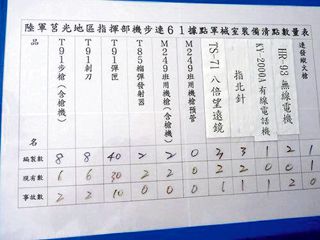 陸軍莒光地區指揮部機步連61據點軍械室裝備清點數量表
品名
T91步槍(含槍機)
T91刺刀
T91彈匣
T85榴彈發射器
M249班用機槍(含槍機)
M249班用機槍預管
TS-71八倍望遠鏡
指北針
KY-2000A有線電話機
HR-93無線電機
連發縱火槍
編製數 8 8 40 2 2 0 2 3 1 2 1
現有數 6 6 30 2 2 0 2 2 0 0 1
事故數 2 2 10 0 0 0 0 1 1 2 0